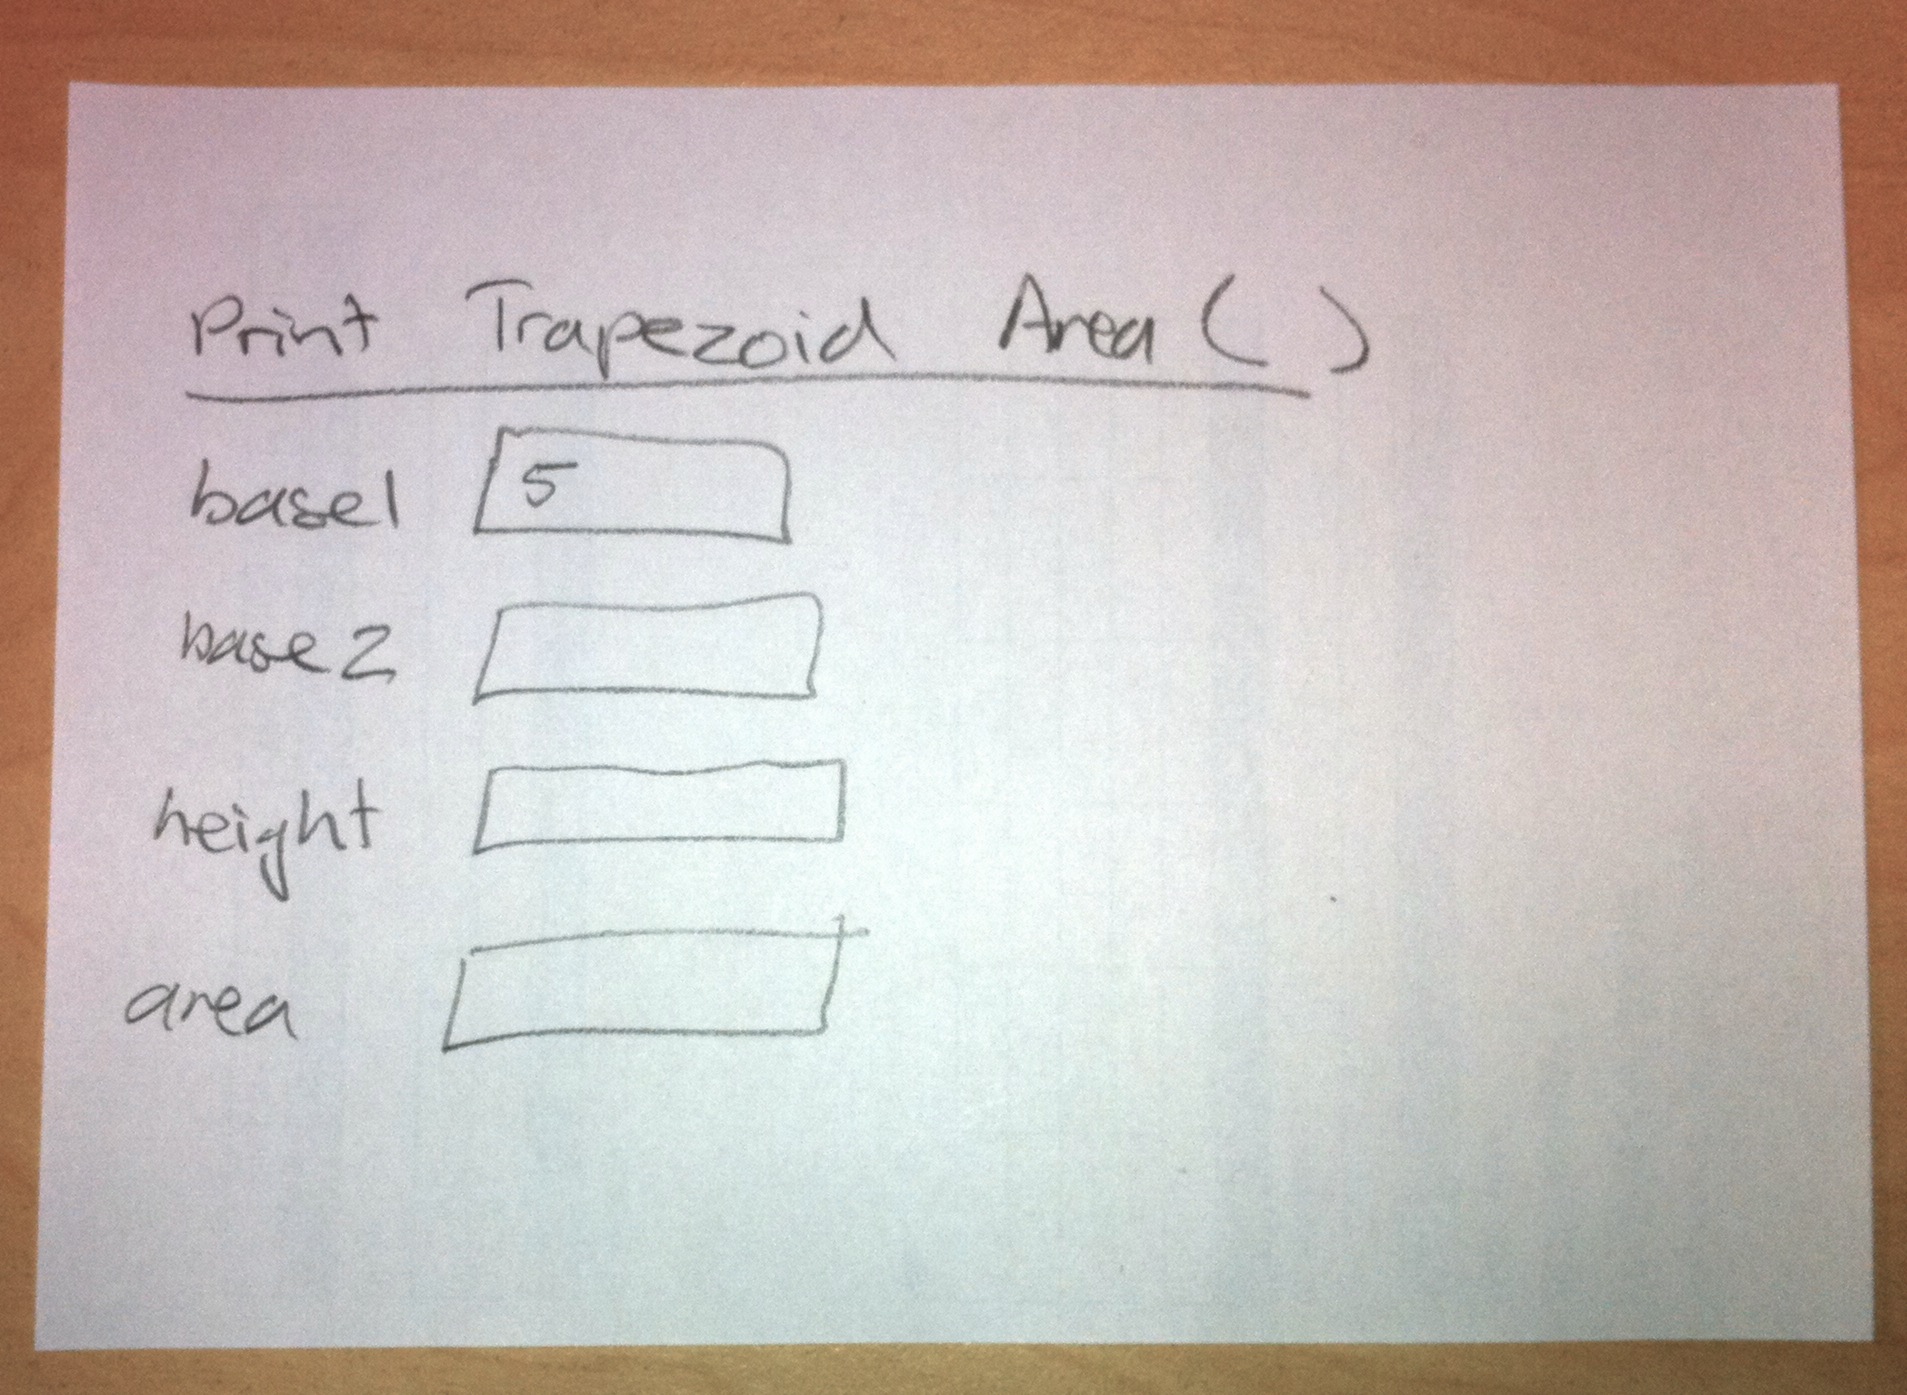 Print Trapezoid Area ( )
base1 5
base2
height
area